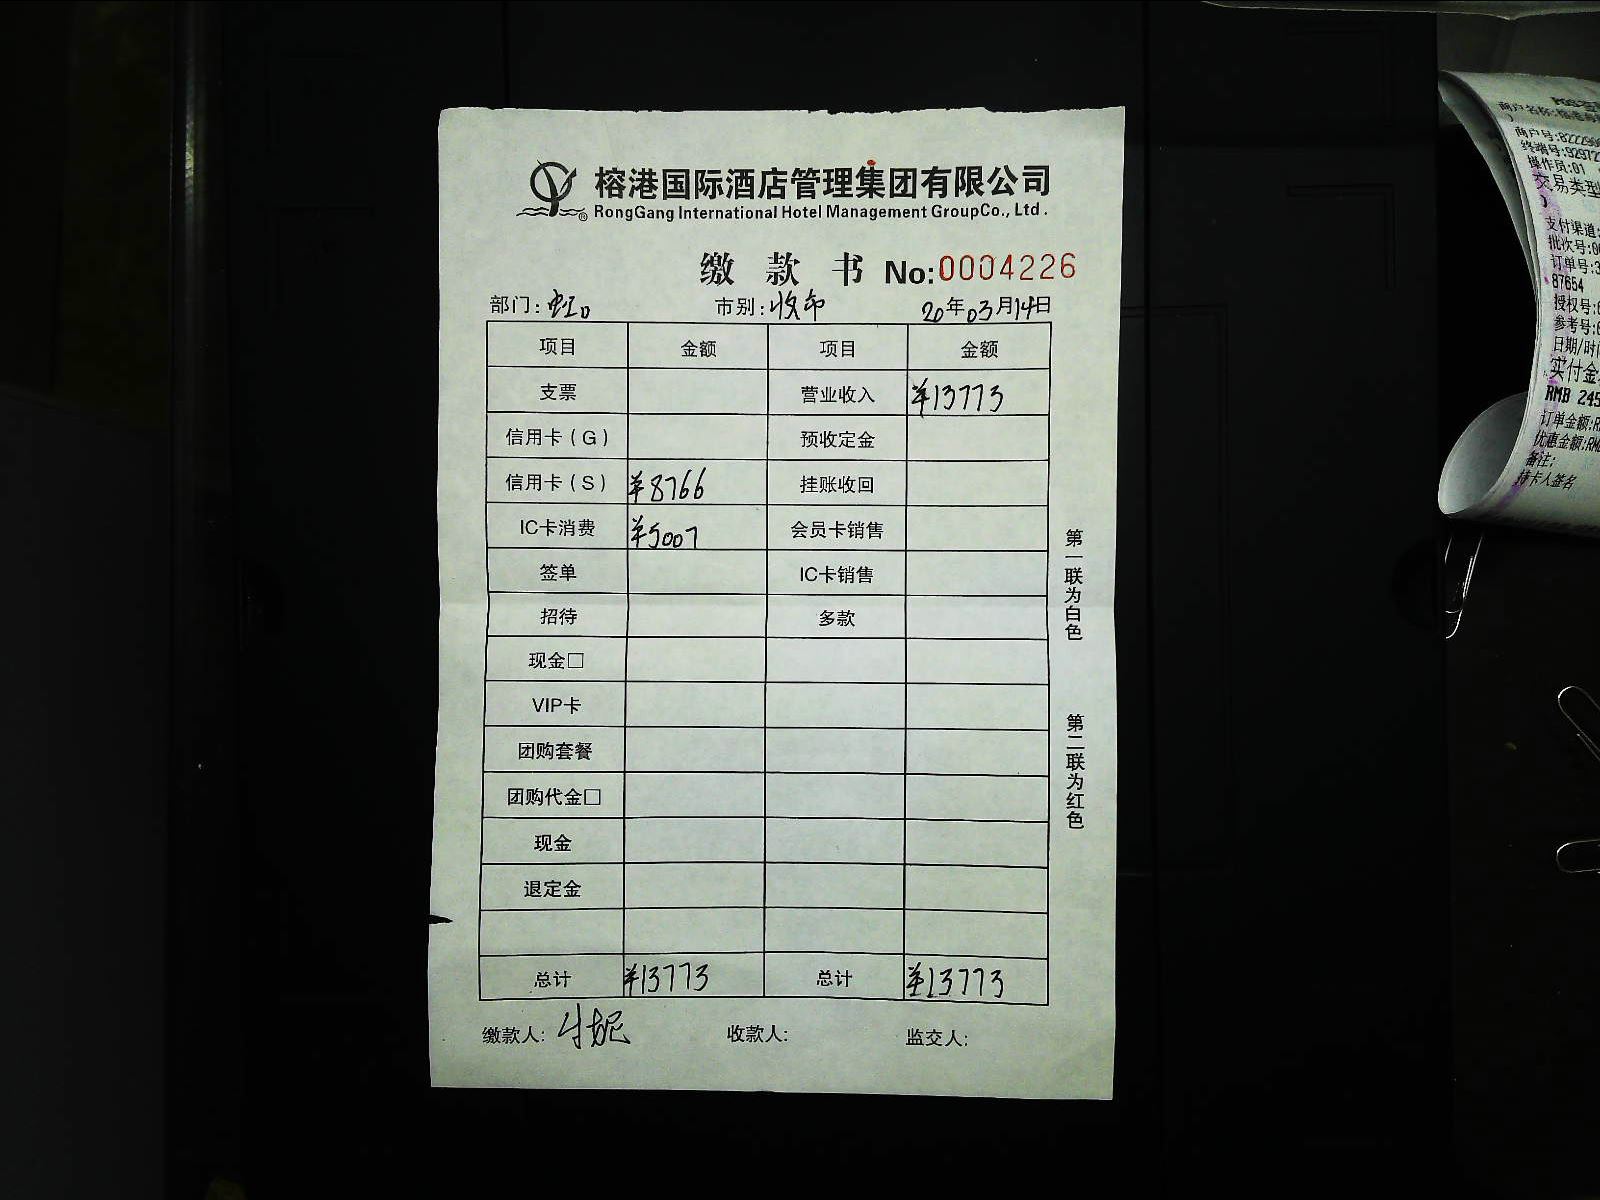 榕港国际酒店管理集团有限公司
RongGang International Hotel Management GroupCo., Ltd.
缴款书 No:0004226
部门:虹口 市别:收市 20年03月14日
项目 金额 项目 金额
支票 营业收入 ¥13773
信用卡(G) 预收定金
信用卡(S) ¥8766 挂账收回
IC卡消费 ¥5007 会员卡销售
签单 IC卡销售
招待 多款
现金□
VIP卡
团购套餐
团购代金□
现金
退定金
总计 ¥13773 总计 ¥13773
缴款人: 收款人: 监交人:
第一联为白色
第二联为红色
商户名称:
商户号:822290
终端号:92972
操作员:01
交易类型
)
支付渠道:
批次号:00
订单号:3
87654
授权号:
参考号:
日期/时间
实付金
RMB 245
订单金额:R
优惠金额:RM
备注:
持卡人签名